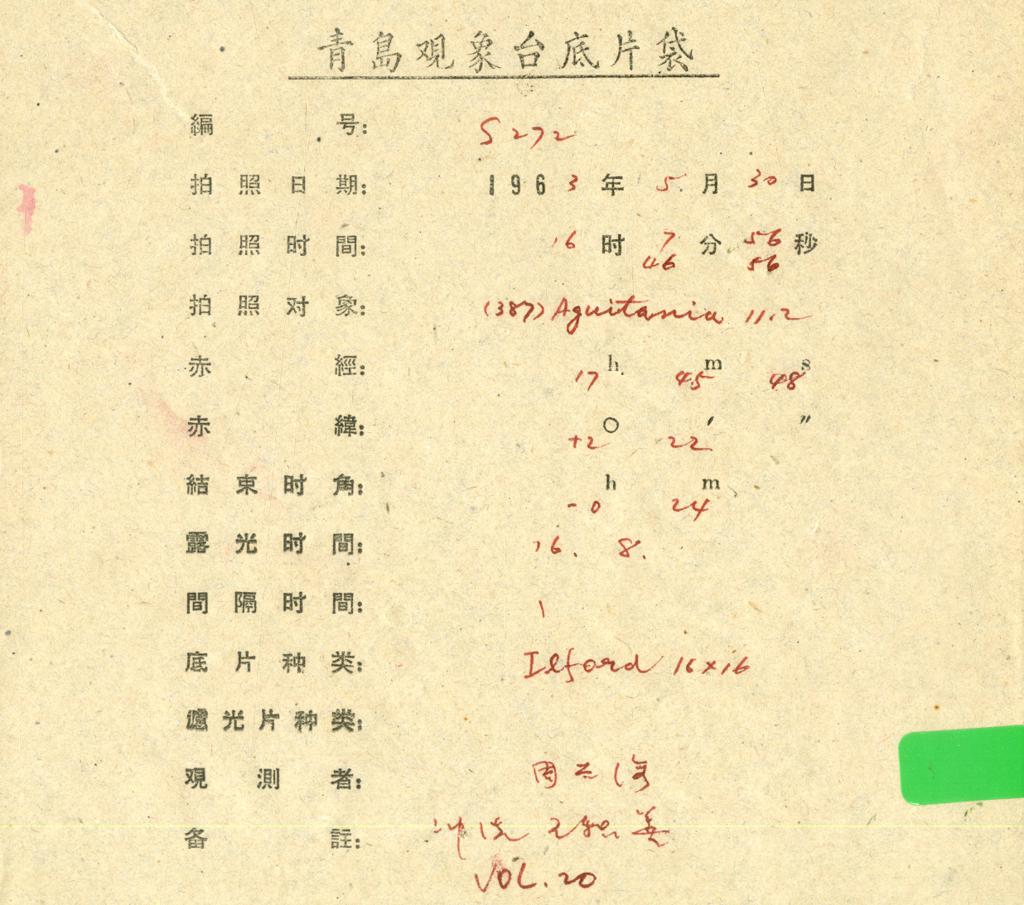 青島观象台底片袋
編号: S272
拍照日期: 1963年5月30日
拍照时間: 16时7分56秒
46 56
拍照对象: (387) Aguitania 11.2
赤經: 17h 45m 48s
赤緯: +2° 22′ ″
結束时角: -0h 24m
露光时間: 16. 8.
間隔时間: 1
底片种类: Ilford 16×16
濾光片种类:
观測者: 周
备註: 冲洗 王
VOL.20